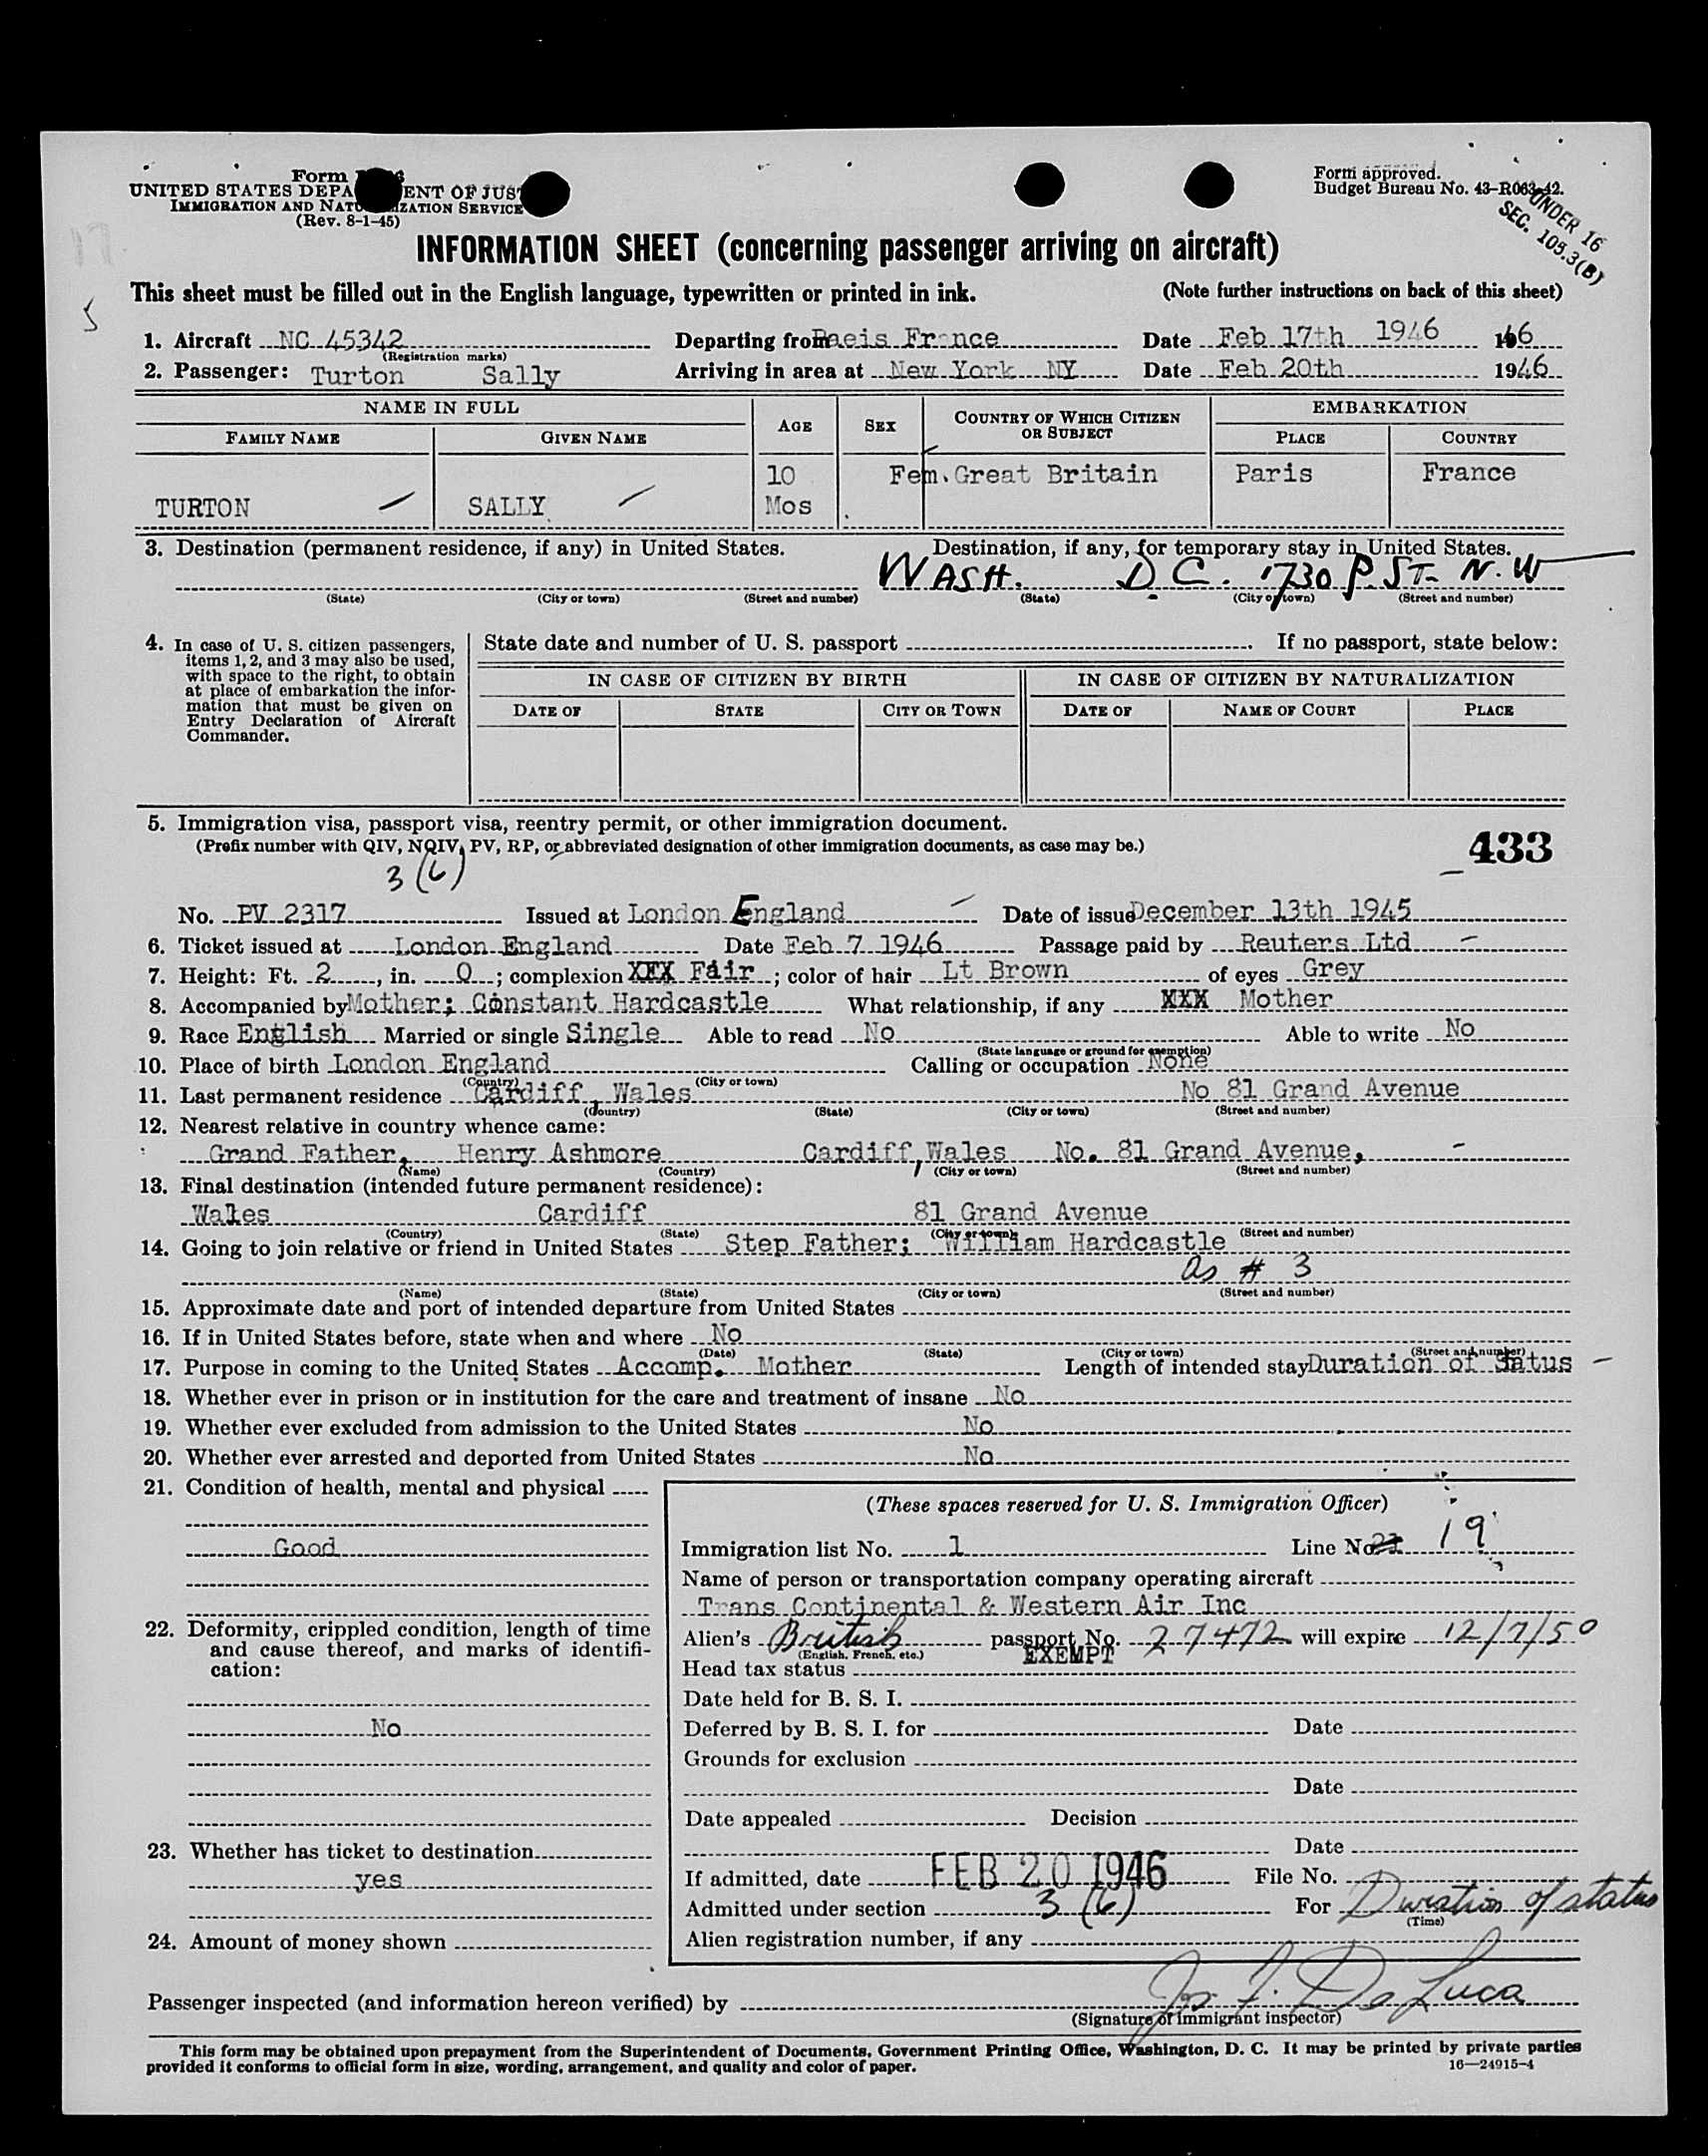 Form
UNITED STATES DEPA ENT OF JUS
IMMIGRATION AND NATU IZATION SERVICE
(Rev. 8-1-45)
Form approved.
Budget Bureau No. 43-R063-42.
UNDER 16
SEC. 105.3(B)
INFORMATION SHEET (concerning passenger arriving on aircraft)
This sheet must be filled out in the English language, typewritten or printed in ink. (Note further instructions on back of this sheet)
1. Aircraft NC 45342 Departing from Paeis France Date Feb 17th 1946 1946
(Registration marks)
2. Passenger: Turton Sally Arriving in area at New York NY Date Feb 20th 1946
NAME IN FULL AGE SEX COUNTRY OF WHICH CITIZEN OR SUBJECT EMBARKATION
FAMILY NAME GIVEN NAME PLACE COUNTRY
10 Fem. Great Britain Paris France
TURTON SALLY Mos
3. Destination (permanent residence, if any) in United States. Destination, if any, for temporary stay in United States.
WASH. D.C. 1730 P ST- N.W
(State) (City or town) (Street and number) (State) (City or town) (Street and number)
4. In case of U. S. citizen passengers, items 1, 2, and 3 may also be used, with space to the right, to obtain at place of embarkation the information that must be given on Entry Declaration of Aircraft Commander.
State date and number of U. S. passport If no passport, state below:
IN CASE OF CITIZEN BY BIRTH IN CASE OF CITIZEN BY NATURALIZATION
DATE OF STATE CITY OR TOWN DATE OF NAME OF COURT PLACE
5. Immigration visa, passport visa, reentry permit, or other immigration document.
(Prefix number with QIV, NQIV, PV, RP, or abbreviated designation of other immigration documents, as case may be.) 433
3 (6)
No. PV 2317 Issued at London England Date of issue December 13th 1945
6. Ticket issued at London England Date Feb 7 1946 Passage paid by Reuters Ltd
7. Height: Ft. 2, in. 0; complexion XXX Fair; color of hair Lt Brown of eyes Grey
8. Accompanied by Mother; Constant Hardcastle What relationship, if any XXX Mother
9. Race English Married or single Single Able to read No Able to write No
(State language or ground for exemption)
10. Place of birth London England Calling or occupation None
(Country) (City or town)
11. Last permanent residence Cardiff, Wales No 81 Grand Avenue
(Country) (State) (City or town) (Street and number)
12. Nearest relative in country whence came:
Grand Father, Henry Ashmore Cardiff, Wales No. 81 Grand Avenue,
(Name) (Country) (City or town) (Street and number)
13. Final destination (intended future permanent residence):
Wales Cardiff 81 Grand Avenue
(Country) (State) (City or town) (Street and number)
14. Going to join relative or friend in United States Step Father; William Hardcastle
as # 3
(Name) (State) (City or town) (Street and number)
15. Approximate date and port of intended departure from United States
16. If in United States before, state when and where No
(Date) (State) (City or town) (Street and number)
17. Purpose in coming to the United States Accomp. Mother Length of intended stay Duration of Status
18. Whether ever in prison or in institution for the care and treatment of insane No
19. Whether ever excluded from admission to the United States No
20. Whether ever arrested and deported from United States No
21. Condition of health, mental and physical
Good
22. Deformity, crippled condition, length of time and cause thereof, and marks of identification:
No
23. Whether has ticket to destination
yes
24. Amount of money shown
(These spaces reserved for U. S. Immigration Officer)
Immigration list No. 1 Line No. 19
Name of person or transportation company operating aircraft
Trans Continental & Western Air Inc
Alien's British passport No. 27472 will expire 12/7/50
(English, French, etc.)
Head tax status EXEMPT
Date held for B. S. I.
Deferred by B. S. I. for Date
Grounds for exclusion
Date
Date appealed Decision
Date
If admitted, date FEB 20 1946 File No.
Admitted under section 3 (6) For Duration of status
(Time)
Alien registration number, if any
Passenger inspected (and information hereon verified) by Jos F. De Luca
(Signature of immigrant inspector)
This form may be obtained upon prepayment from the Superintendent of Documents, Government Printing Office, Washington, D. C. It may be printed by private parties
provided it conforms to official form in size, wording, arrangement, and quality and color of paper. 16—24915-4